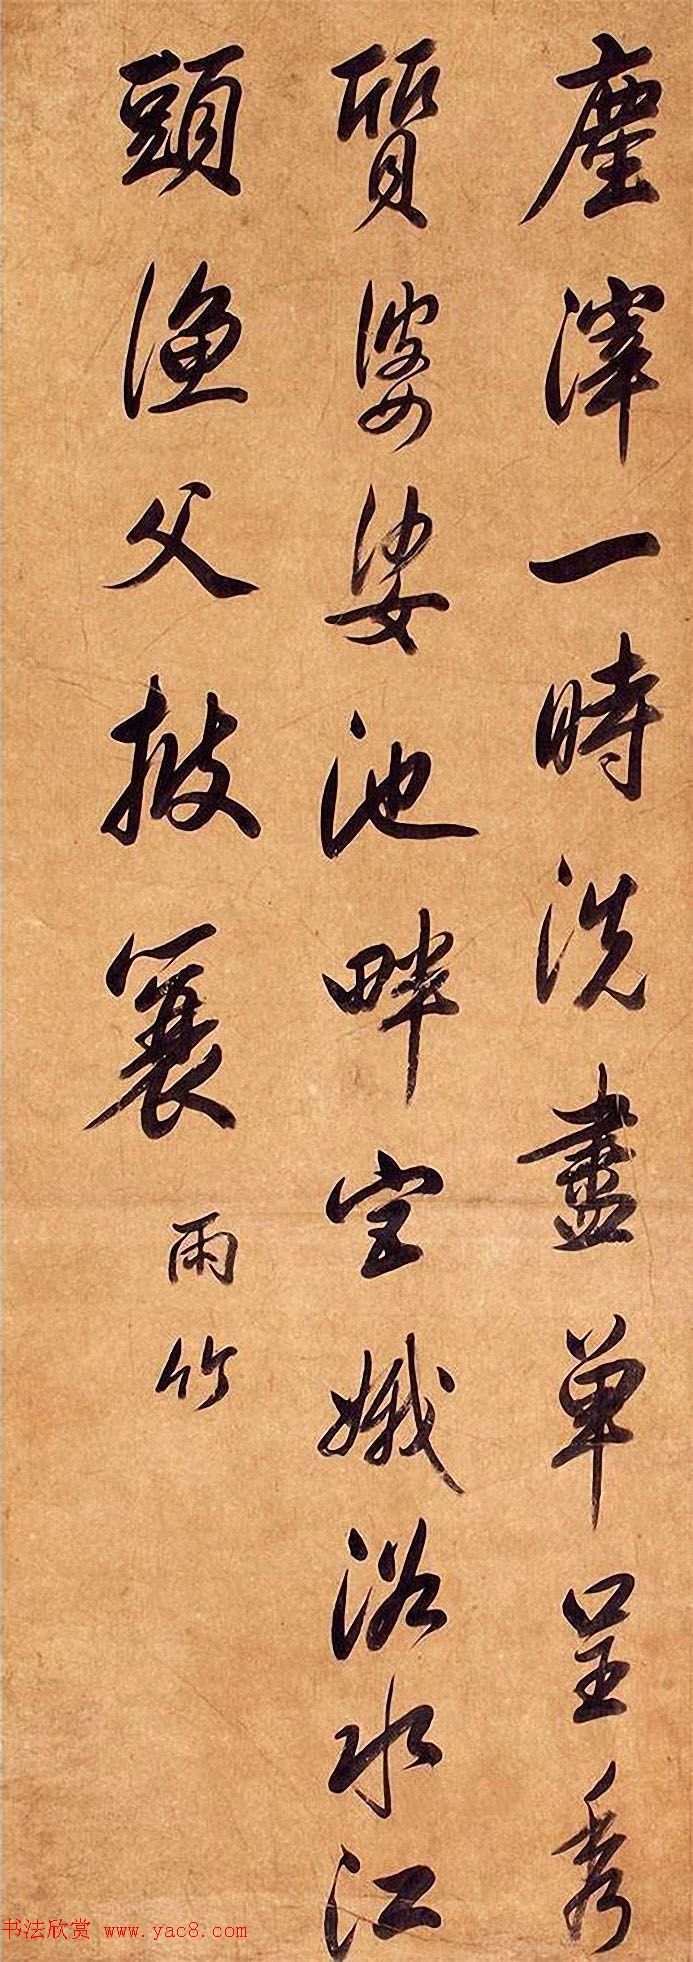 塵滓一時洗盡單呈秀
質婆娑池畔宮娥浴水江
頭漁父披蓑 雨竹
书法欣赏 www.yac8.com